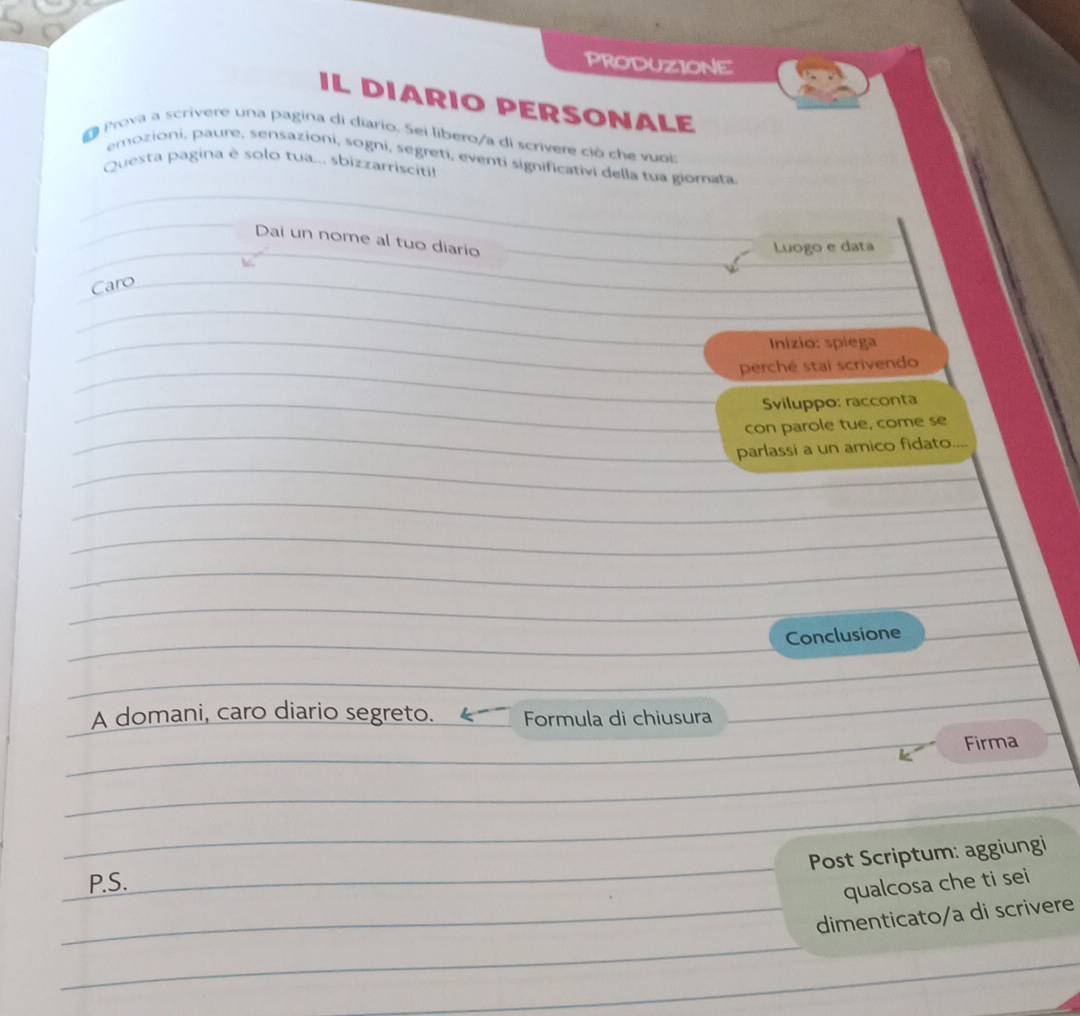 PRODUZIONE
IL DIARIO PERSONALE
1 Prova a scrivere una pagina di diario. Sei libero/a di scrivere ciò che vuoi:
emozioni, paure, sensazioni, sogni, segreti, eventi significativi della tua giornata.
Questa pagina è solo tua... sbizzarrisciti!
Dai un nome al tuo diario
Luogo e data
Caro
Inizio: spiega
perché stai scrivendo
Sviluppo: racconta
con parole tue, come se
parlassi a un amico fidato....
Conclusione
A domani, caro diario segreto.
Formula di chiusura
Firma
P.S.
Post Scriptum: aggiungi
qualcosa che ti sei
dimenticato/a di scrivere